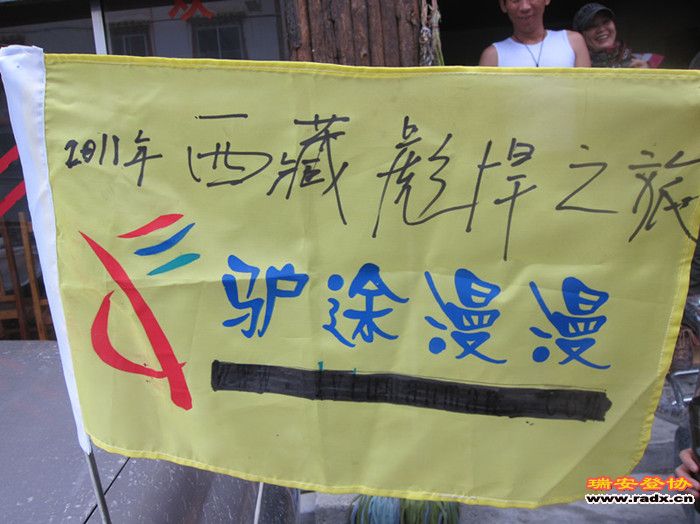 2011年 西藏彪悍之旅
驴途漫漫
瑞安登协
www.radx.cn